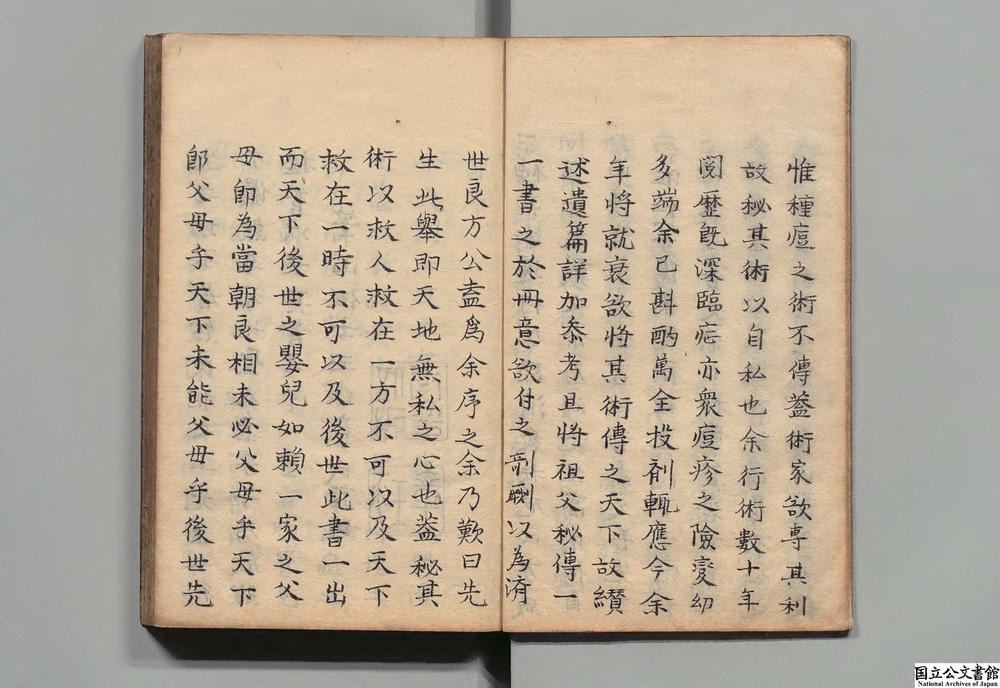 惟種痘之術不傳葢術家欲専其利
故秘其術以自私也余行術數十年
閲歷既深臨症亦衆痘疹之險変幻
多端余已斟酌萬全投劑輒應今余
年將就衰欲将其術傳之天下故纉
述遺篇詳加叅考且将祖父秘傳一
一書之於冊意欲付之剞劂以為済
世良方公盍爲余序之余乃歎曰先
生此舉即天地無私之心也葢秘其
術以救人救在一方不可以及天下
救在一時不可以及後世此書一出
而天下後世之嬰兒如賴一家之父
母即為當朝良相未必父母乎天下
即父母乎天下未能父母乎後世先
国立公文書館
National Archives of Japan